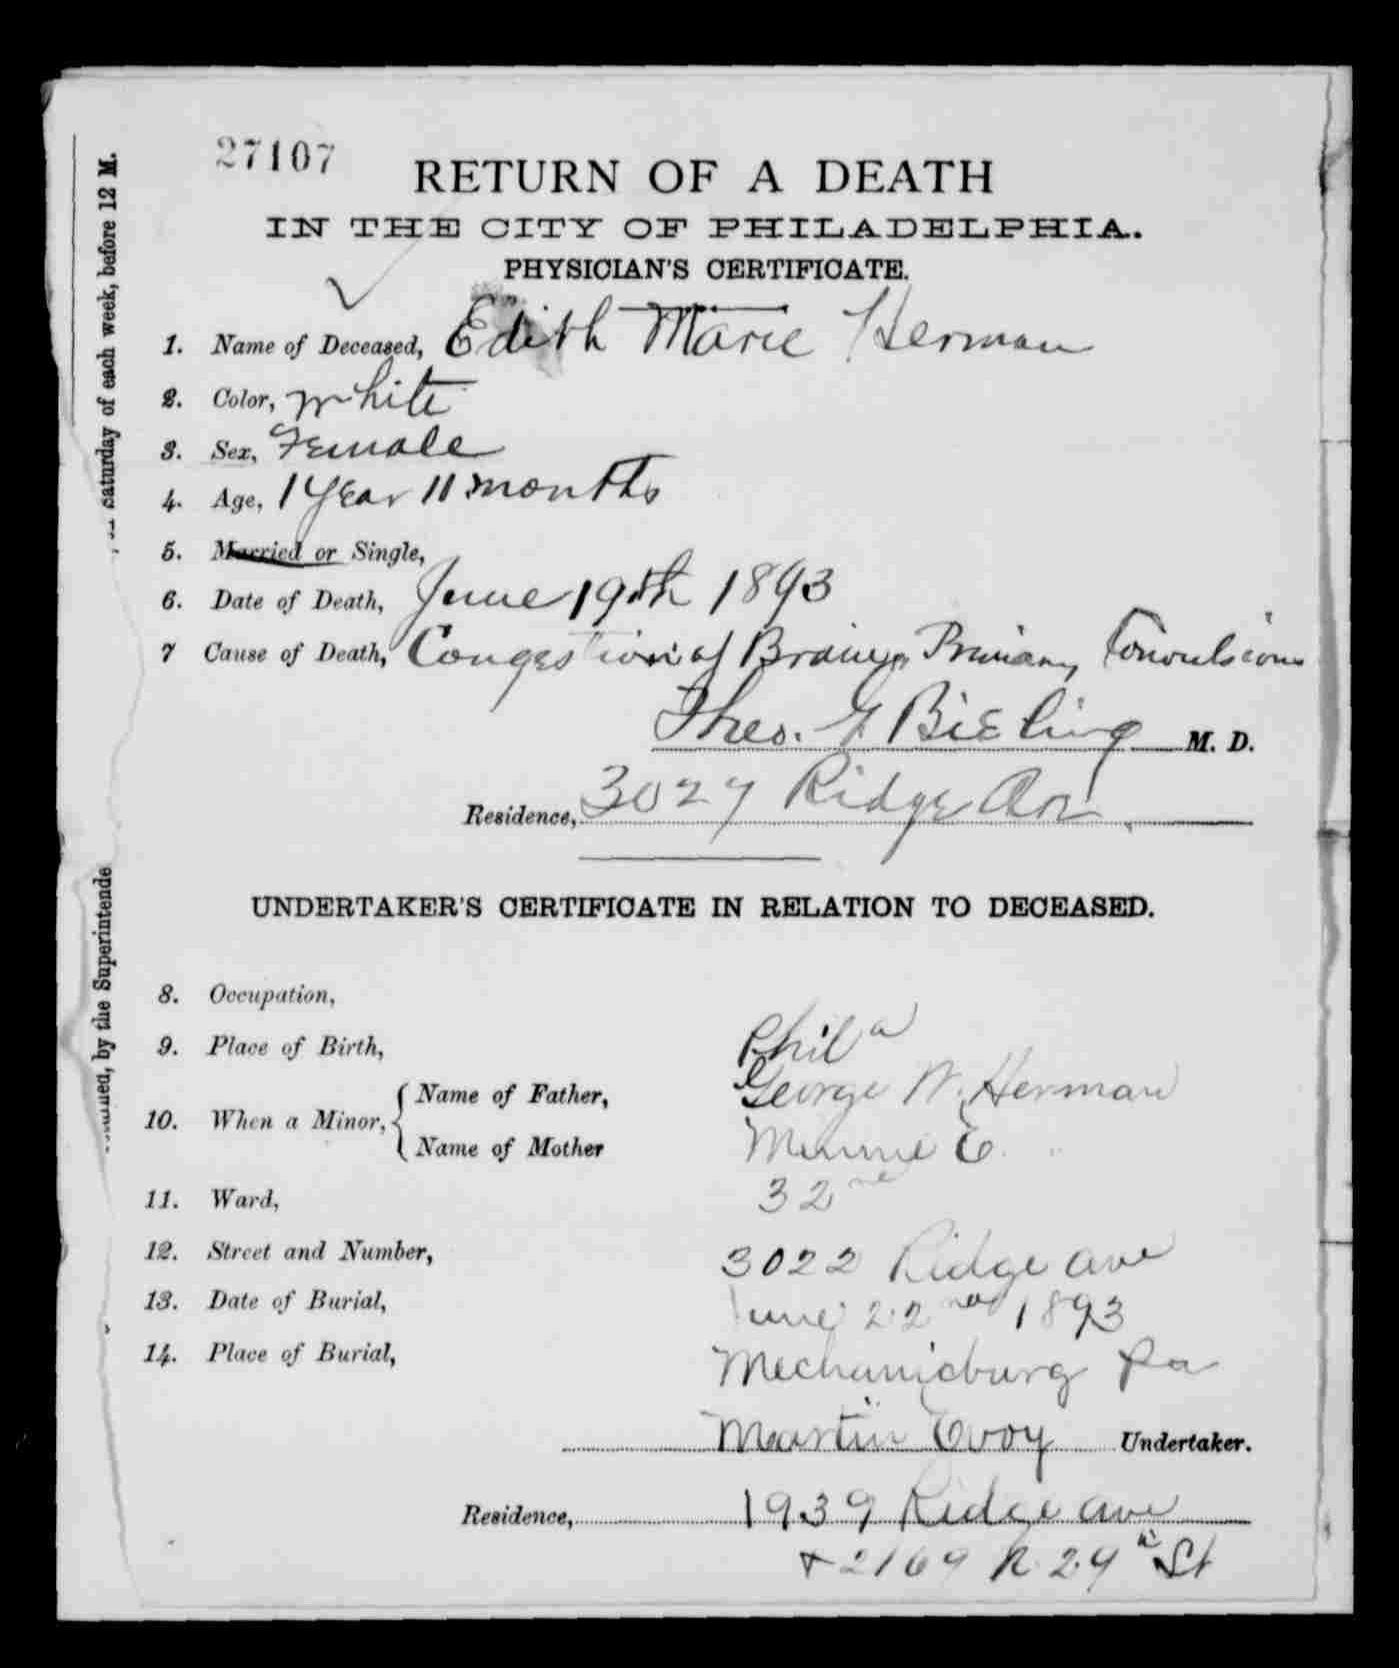 27107
RETURN OF A DEATH
IN THE CITY OF PHILADELPHIA.
PHYSICIAN'S CERTIFICATE.
1. Name of Deceased, Edith Marie Herman
2. Color, White
3. Sex, Female
4. Age, 1 Year 11 months
5. Married or Single,
6. Date of Death, June 19th 1893
7 Cause of Death, Congestion of Brain Primary Convulsions
Theo. G Bieling M. D.
Residence, 3027 Ridge Av
UNDERTAKER'S CERTIFICATE IN RELATION TO DECEASED.
8. Occupation,
9. Place of Birth, Phila
10. When a Minor, { Name of Father, George W. Herman
Name of Mother Minnie E.
11. Ward, 32nd
12. Street and Number, 3022 Ridge ave
13. Date of Burial, June 22nd 1893
14. Place of Burial, Mechanicburg Pa
Martin Evoy Undertaker.
Residence, 1939 Ridge ave
+ 2169 N. 29th St
Saturday of each week, before 12 M.
by the Superintende